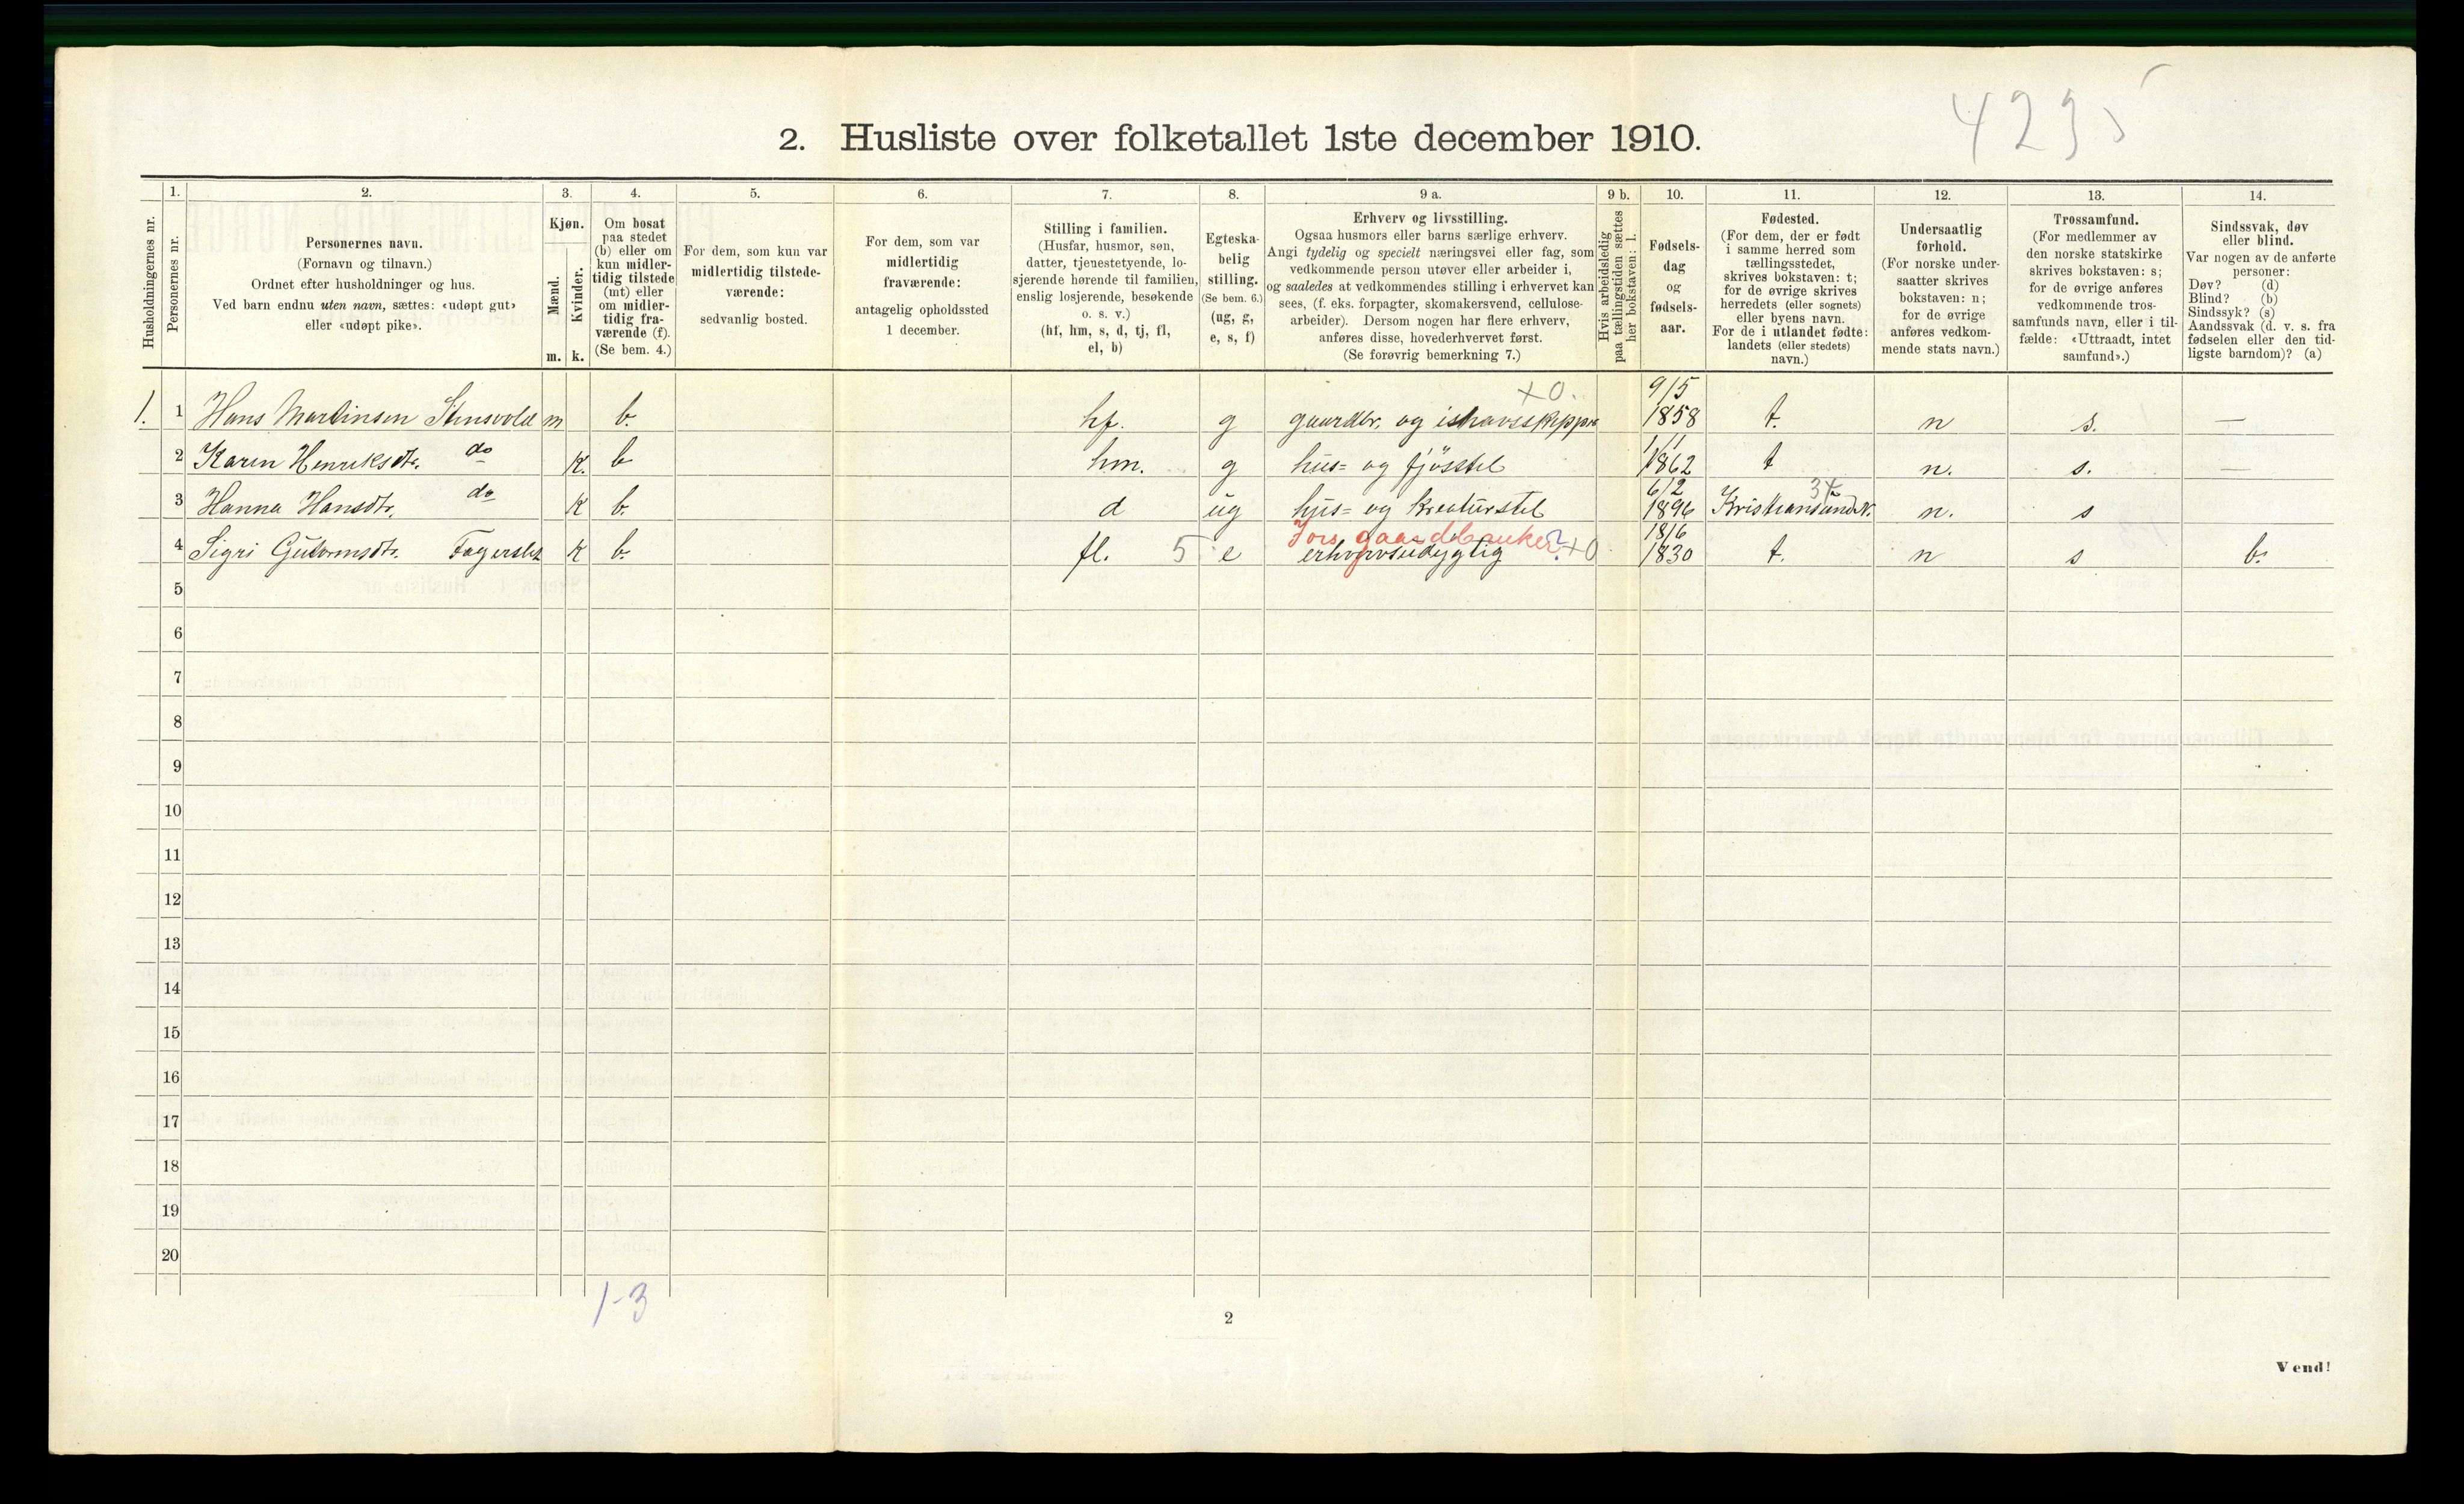 4235
2. Husliste over folketallet 1ste december 1910.
Husholdningernes nr.
1.
Personernes nr.
2.
Personernes navn.
(Fornavn og tilnavn.)
Ordnet efter husholdninger og hus.
Ved barn endnu uten navn, sættes: «udøpt gut»
eller «udøpt pike».
3.
Kjøn.
Mænd.
Kvinder.
m. k.
4.
Om bosat
paa stedet
(b) eller om
kun midler-
tidig tilstede
(mt) eller
om midler-
tidig fra-
værende (f).
(Se bem. 4.)
5.
For dem, som kun var
midlertidig tilstede-
værende:
sedvanlig bosted.
6.
For dem, som var
midlertidig
fraværende:
antagelig opholdssted
1 december.
7.
Stilling i familien.
(Husfar, husmor, søn,
datter, tjenestetyende, lo-
sjerende hørende til familien,
enslig losjerende, besøkende
o. s. v.)
(hf, hm, s, d, tj, fl,
el, b)
8.
Egteska-
belig
stilling.
(Se bem. 6.)
(ug, g,
e, s, f)
9 a.
Erhverv og livsstilling.
Ogsaa husmors eller barns særlige erhverv.
Angi tydelig og specielt næringsvei eller fag, som
vedkommende person utøver eller arbeider i,
og saaledes at vedkommendes stilling i erhvervet kan
sees, (f. eks. forpagter, skomakersvend, cellulose-
arbeider). Dersom nogen har flere erhverv,
anføres disse, hovederhvervet først.
(Se forøvrig bemerkning 7.)
9 b.
Hvis arbeidsledig
paa tællingstiden sættes
her bokstaven: l.
10.
Fødsels-
dag
og
fødsels-
aar.
11.
Fødested.
(For dem, der er født
i samme herred som
tællingsstedet,
skrives bokstaven: t;
for de øvrige skrives
herredets (eller sognets)
eller byens navn.
For de i utlandet fødte:
landets (eller stedets)
navn.)
12.
Undersaatlig
forhold.
(For norske under-
saatter skrives
bokstaven: n;
for de øvrige
anføres vedkom-
mende stats navn.)
13.
Trossamfund.
(For medlemmer av
den norske statskirke
skrives bokstaven: s;
for de øvrige anføres
vedkommende tros-
samfunds navn, eller i til-
fælde: «Uttraadt, intet
samfund».)
14.
Sindssvak, døv
eller blind.
Var nogen av de anførte
personer:
Døv? (d)
Blind? (b)
Sindssyk? (s)
Aandssvak (d. v. s. fra
fødselen eller den tid-
ligste barndom)? (a)
+0. 9/5
1. 1 Hans Martinsen Stensvold m b. hf. g gaardbr. og ishavsskipper 1858 t. n s. —
1/1
2 Karen Henriksdtr. do K. b hm. g hus= og fjösstel 1862 t n. s. —
6/2 34
3 Hanna Hansdtr. do K b. d ug hus= og kreaturstel 1896 Kristiansund N. n. s
Fors. gaardbruker? 18/6
4 Sigri Guttormsdtr. Fagerslet K b. fl. 5 e erhvervsudygtig +0 1830 t. n s b.
5
6
7
8
9
10
11
12
13
14
15
16
17
18
19
20
1-3
2
Vend!